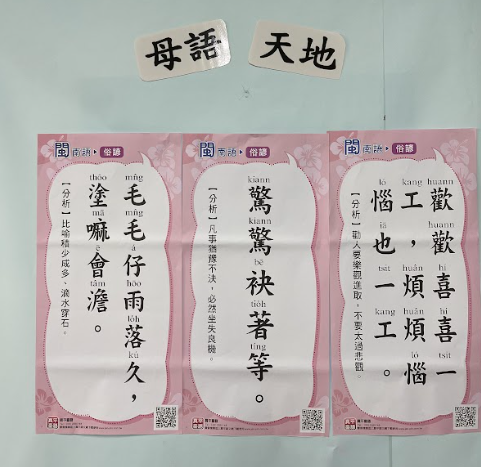 母語 天地
閩南語 俗諺
mn̂g mn̂g á hōo lo̍h kú
毛毛仔雨落久，
thôo mā ē tâm
塗嘛會澹。
【分析】比喻積少成多、滴水穿石。
閩南語 俗諺
kiann kiann bē tio̍h tíng
驚驚袂著等。
【分析】凡事猶豫不決，必然坐失良機。
閩南語 俗諺
huann huann hí hí tsi̍t
歡歡喜喜一
kang huân huân ló
工，煩煩惱
ló iā tsi̍t kang
惱也一工。
【分析】勸人要樂觀進取，不要太過悲觀。